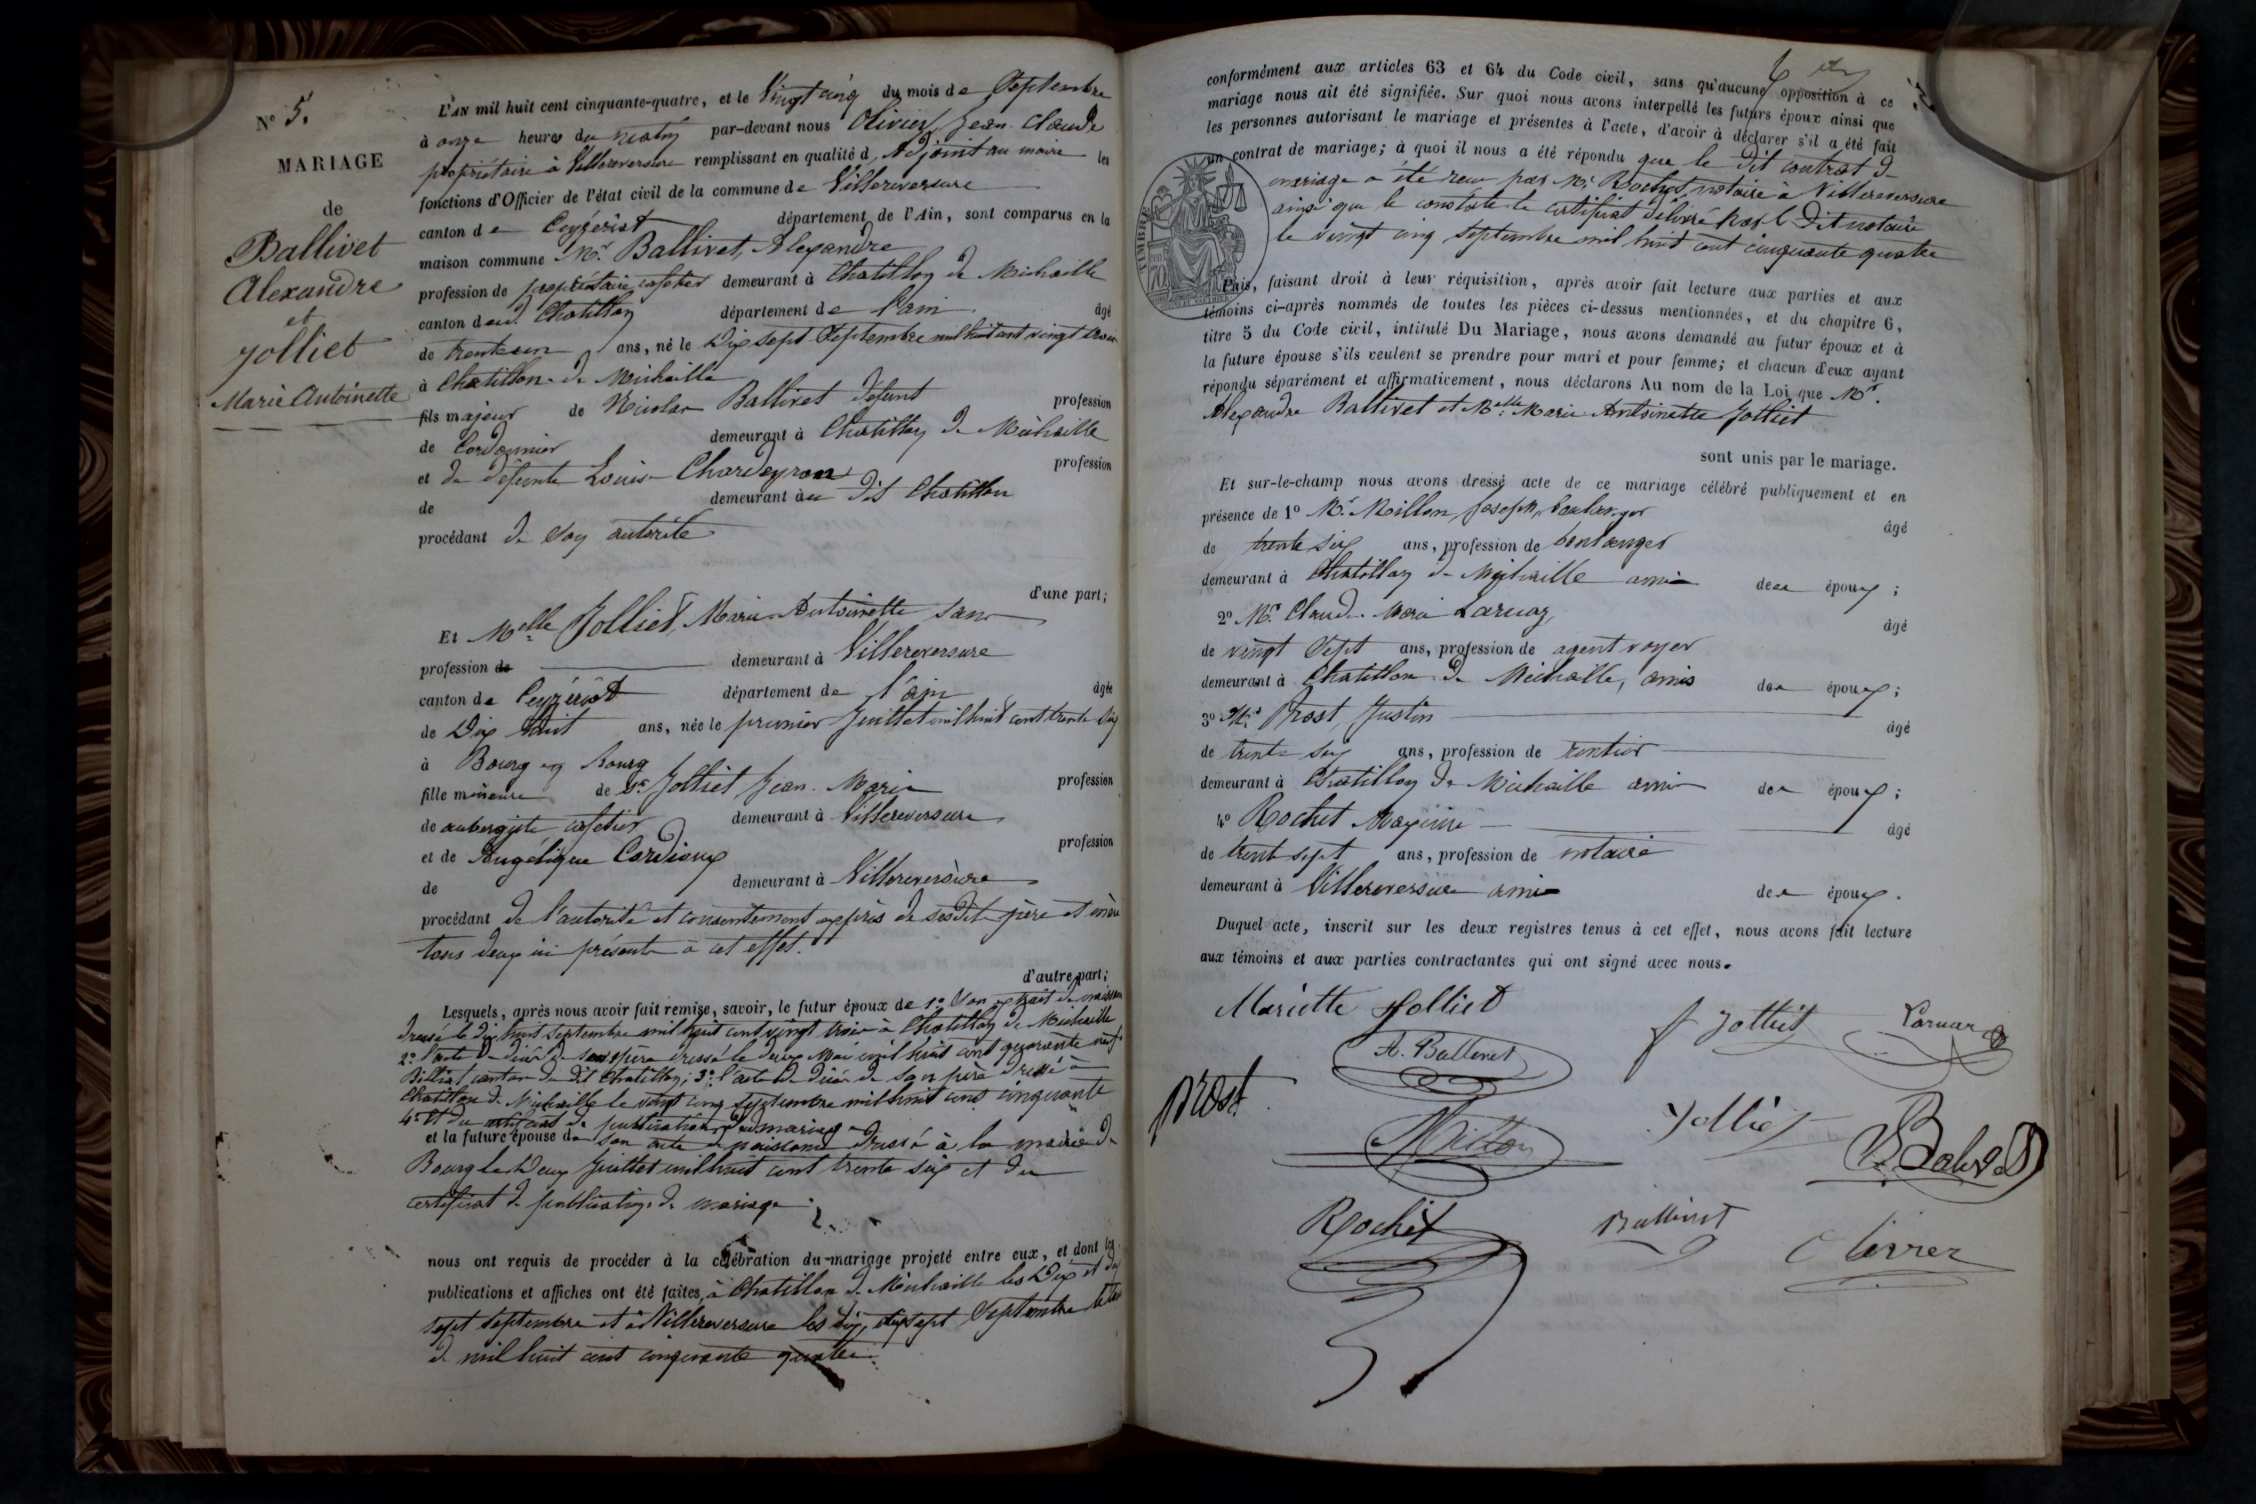 N° 5.
MARIAGE
de
Ballivet
Alexandre
et
Jolliet
Marie Antoinette
L'AN mil huit cent cinquante-quatre, et le Vingt cinq du mois de Septembre
à onze heures du matin par-devant nous Olivier Jean-Claude
propriétaire à Villereversure remplissant en qualité d'Adjoint au maire les
fonctions d'Officier de l'état civil de la commune de Villereversure
canton de Ceyzériat département de l'Ain, sont comparus en la
maison commune Mr Ballivet, Alexandre
profession de propriétaire cafetier demeurant à Chatillon de Michaille
canton dud. Chatillon département de l'ain âgé
de trente un ans, né le Dix sept Septembre mil huit cent vingt trois
à Chatillon de Michaille
fils majeur de Nicolas Ballivet défunt profession
de Cordonnier demeurant à Chatillon de Michaille
et de défunte Louise Chardeyron profession
de demeurant au dit Chatillon
procédant de son autorité
d'une part;
Et Melle Jolliet, Marie Antoinette sans
profession de demeurant à Villereversure
canton de Ceyzériat département de l'ain âgée
de Dix huit ans, née le premier Juillet mil huit cent trente six
à Bourg en Bourg
fille mineure de Sr Jolliet Jean-Marie profession
de aubergiste cafetier demeurant à Villereversure
et de Angélique Cardieux profession
de demeurant à Villereversure
procédant de l'autorité et consentement exprès de ses dits père et mère
tous deux ici présents à cet effet.
d'autre part;
Lesquels, après nous avoir fait remise, savoir, le futur époux de 1° Son extrait de naissance
dressé le dix huit septembre mil huit cent vingt trois à Chatillon de Michaille
2° l'acte de décès de sa mère dressé le deux Mai mil huit cent quarante neuf
Billiat canton du dit Chatillon; 3° l'acte de décès de son père dressé à
Chatillon de Michaille le vingt cinq septembre mil huit cent cinquante
4° Et du certificat de publication du mariage
et la future épouse de son acte de naissance dressé à la mairie de
Bourg le Deux Juillet mil huit cent trente six et du
certificat de publication de mariage
nous ont requis de procéder à la célébration du mariage projeté entre eux, et dont les
publications et affiches ont été faites, à Chatillon de Michaille les Dix et dix
sept septembre et à Villereversure les dix, dix sept Septembre
de mil huit cent cinquante quatre.
conformément aux articles 63 et 64 du Code civil, sans qu'aucune opposition à ce
mariage nous ait été signifiée. Sur quoi nous avons interpellé les futurs époux ainsi que
les personnes autorisant le mariage et présentes à l'acte, d'avoir à déclarer s'il a été fait
un contrat de mariage; à quoi il nous a été répondu que le dit contrat de
mariage a été reçu par Me Rochet notaire à Villereversure
ainsi que le constate le certificat délivré par le Dit notaire
le vingt cinq septembre mil huit cent cinquante quatre
TIMBRE
Puis, faisant droit à leur réquisition, après avoir fait lecture aux parties et aux
témoins ci-après nommés de toutes les pièces ci-dessus mentionnées, et du chapitre 6,
titre 5 du Code civil, intitulé Du Mariage, nous avons demandé au futur époux et à
la future épouse s'ils veulent se prendre pour mari et pour femme; et chacun d'eux ayant
répondu séparément et affirmativement, nous déclarons Au nom de la Loi que Mr.
Alexandre Ballivet et Melle Marie-Antoinette Jolliet
sont unis par le mariage.
Et sur-le-champ nous avons dressé acte de ce mariage célébré publiquement et en
présence de 1° Mr Millon, Joseph, boulanger âgé
de trente six ans, profession de boulanger
demeurant à Chatillon de Michaille ami des époux;
2° Mr. Claude Marie Laruaz, âgé
de vingt Sept ans, profession de agent voyer
demeurant à Chatillon de Michaille, amis des époux;
3° Mr Prost, Justin âgé
de trente six ans, profession de rentier
demeurant à Chatillon de Michaille ami des époux;
4° Rochet Maximin âgé
de trente sept ans, profession de notaire
demeurant à Villereversure ami des époux.
Duquel acte, inscrit sur les deux registres tenus à cet effet, nous avons fait lecture
aux témoins et aux parties contractantes qui ont signé avec nous.
Mariette Jolliet
J Jolliet
Laruaz
A. Ballivet
Prost
Jolliet
Millon
Rochet
Ballivet
Olivier